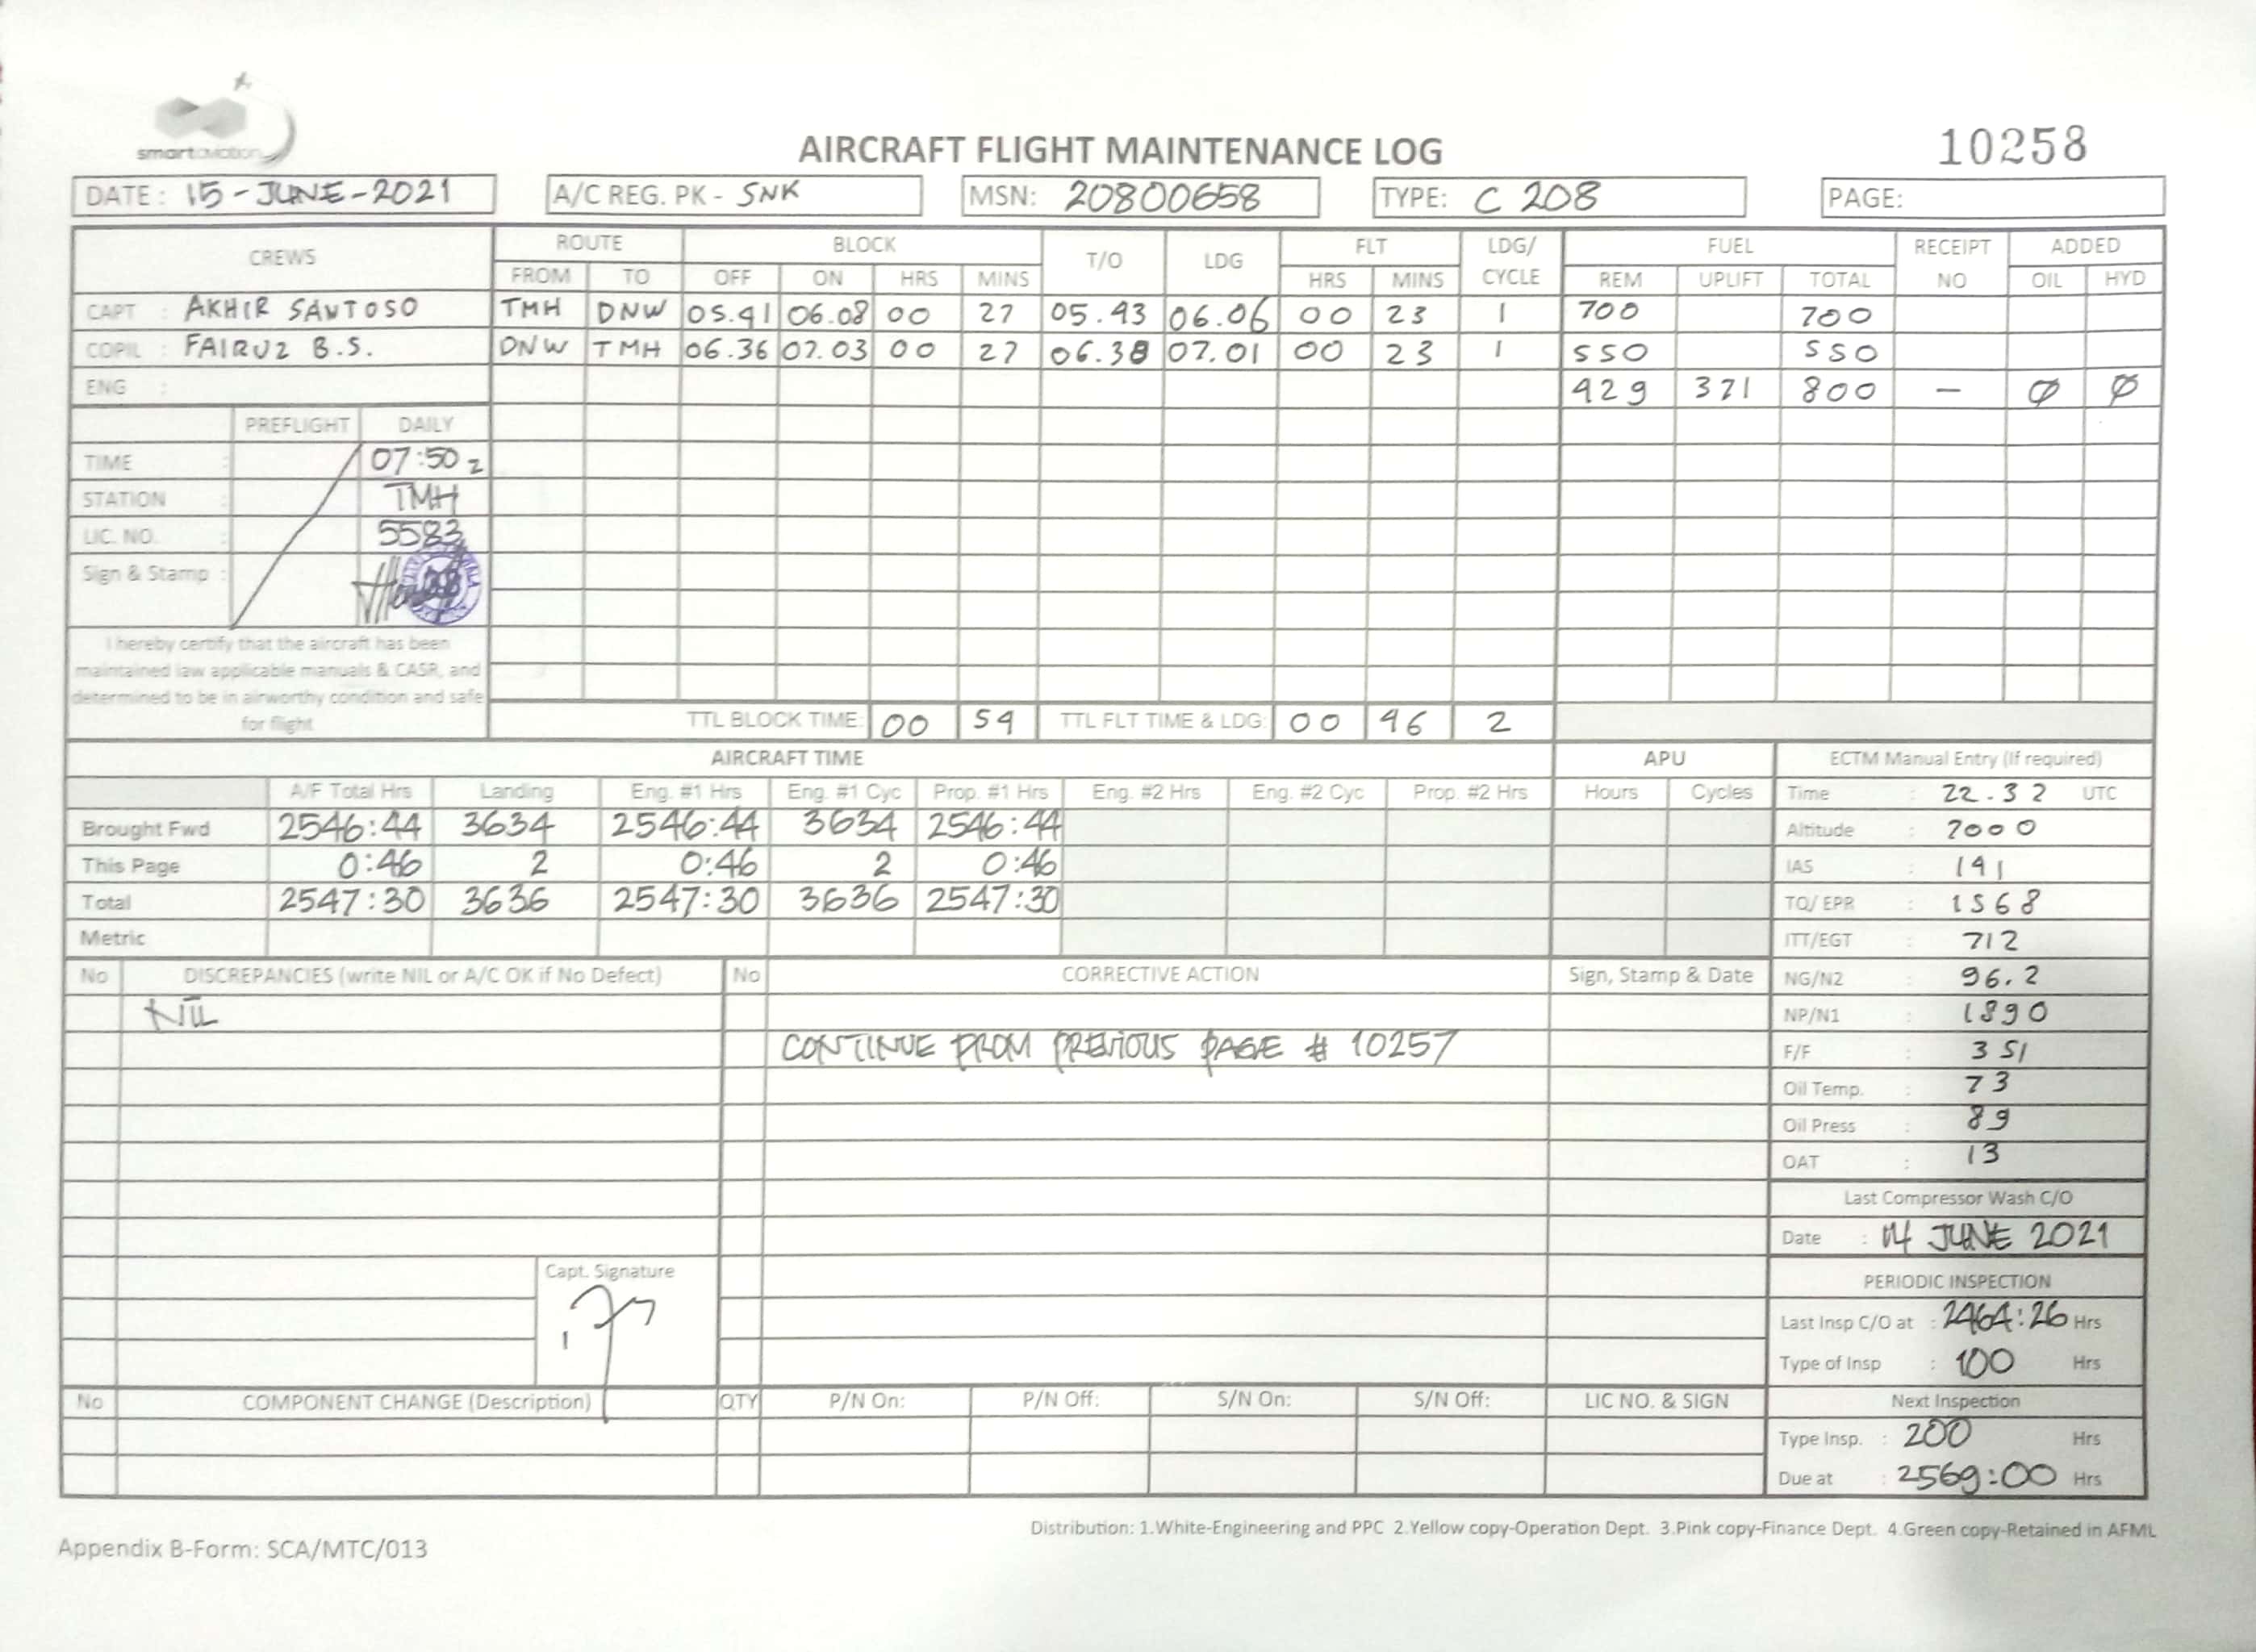 smartaviation
AIRCRAFT FLIGHT MAINTENANCE LOG
10258
DATE : 15-JUNE-2021 A/C REG. PK - SNK MSN: 20800658 TYPE: C 208 PAGE:
CREWS ROUTE BLOCK T/O LDG FLT LDG/ CYCLE FUEL RECEIPT NO ADDED
FROM TO OFF ON HRS MINS HRS MINS REM UPLIFT TOTAL OIL HYD
CAPT : AKHIR SANTOSO TMH DNW 05.41 06.08 00 27 05.43 06.06 00 23 1 700 700
COPIL : FAIRUZ B.S. DNW TMH 06.36 07.03 00 27 06.38 07.01 00 23 1 550 550
ENG : 429 371 800 — Ø Ø
PREFLIGHT DAILY
TIME : 07:50 z
STATION : TMH
LIC. NO. : 5583
Sign & Stamp :
I hereby certify that the aircraft has been
maintained law applicable manuals & CASR, and
determined to be in airworthy condition and safe
for flight
TTL BLOCK TIME: 00 54 TTL FLT TIME & LDG: 00 46 2
AIRCRAFT TIME APU ECTM Manual Entry (If required)
A/F Total Hrs Landing Eng. #1 Hrs Eng. #1 Cyc Prop. #1 Hrs Eng. #2 Hrs Eng. #2 Cyc Prop. #2 Hrs Hours Cycles Time : 22.32 UTC
Brought Fwd 2546:44 3634 2546:44 3634 2546:44 Altitude : 7000
This Page 0:46 2 0:46 2 0:46 IAS : 141
Total 2547:30 3636 2547:30 3636 2547:30 TQ/ EPR : 1568
Metric ITT/EGT : 712
No DISCREPANCIES (write NIL or A/C OK if No Defect) No CORRECTIVE ACTION Sign, Stamp & Date NG/N2 : 96.2
NIL NP/N1 : 1890
CONTINUE FROM PREVIOUS PAGE # 10257 F/F : 351
Oil Temp. : 73
Oil Press : 89
OAT : 13
Last Compressor Wash C/O
Date : 14 JUNE 2021
Capt. Signature
PERIODIC INSPECTION
Last Insp C/O at : 2464:26 Hrs
Type of Insp : 100 Hrs
No COMPONENT CHANGE (Description) QTY P/N On: P/N Off: S/N On: S/N Off: LIC NO. & SIGN Next Inspection
Type Insp. : 200 Hrs
Due at : 2569:00 Hrs
Distribution: 1.White-Engineering and PPC 2.Yellow copy-Operation Dept. 3.Pink copy-Finance Dept. 4.Green copy-Retained in AFML
Appendix B-Form: SCA/MTC/013